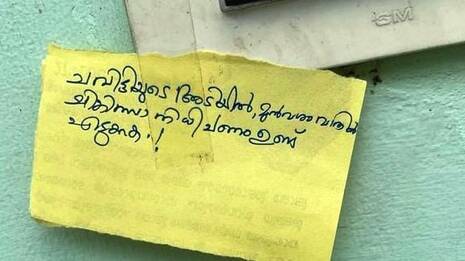 SM
ചവിട്ടിയുടെ അടിയിൽ, മുൻവശം വാതിൽ
ചികിത്സാ നിധി പണം ഉണ്ട്
എടുക്കുക !!